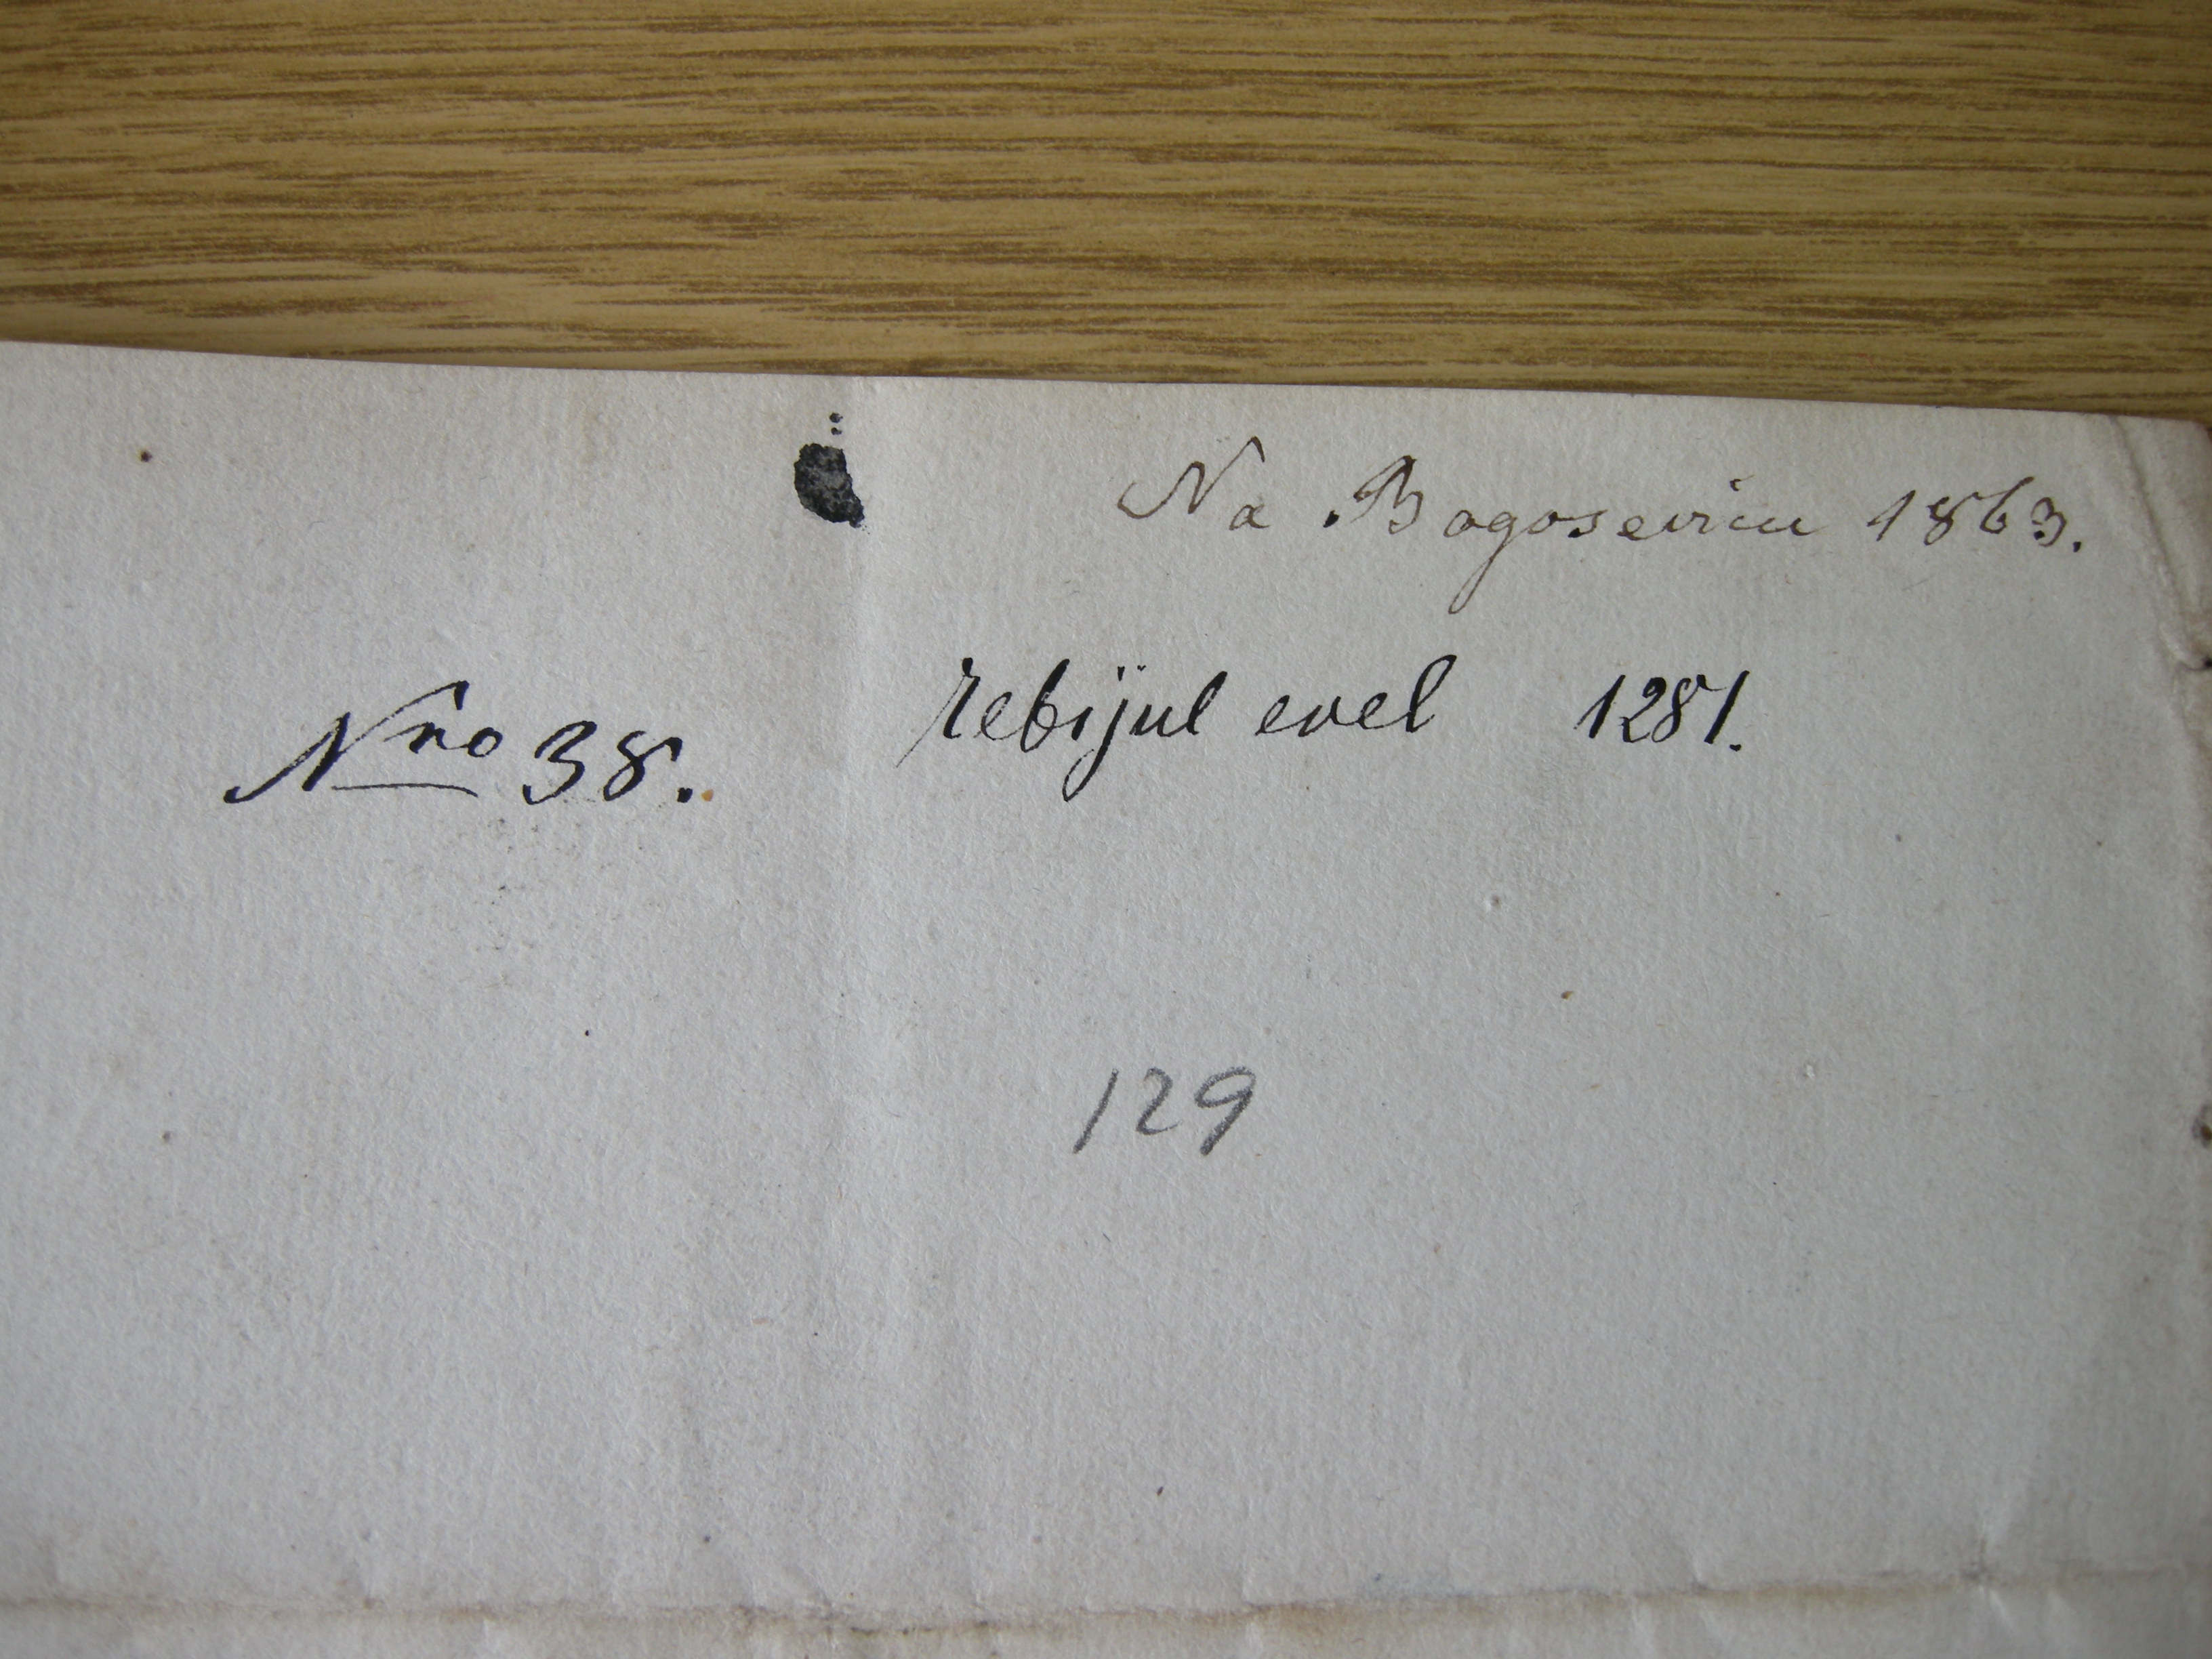 Na Bogoseviću 1863.
Nro 38. rebijul evel 1281.
129